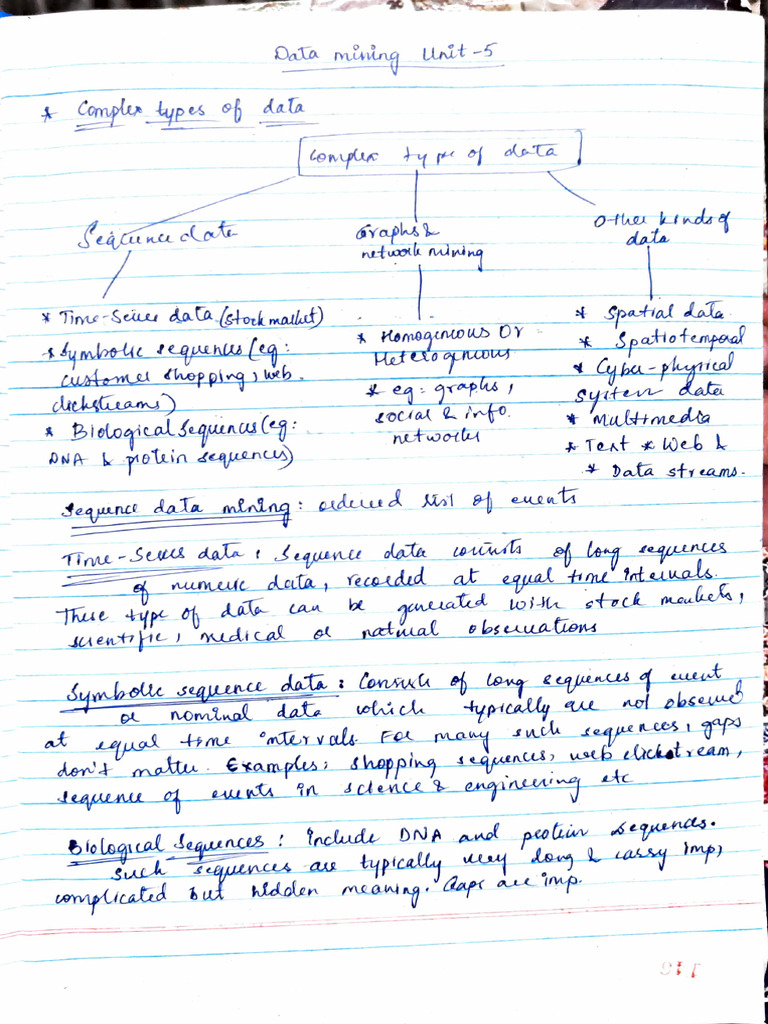 Data mining Unit-5
* Complex types of data
Complex type of data
Sequence data
Graphs &
network mining
Other kinds of
data
* Time-Series data (stock market)
* Symbolic sequences (eg:
customer shopping, web
clickstreams)
* Biological sequences (eg:
DNA & protein sequences)
* Homogeneous Or
Heterogeneous
* eg: graphs,
social & info.
networks
* Spatial data
* Spatiotemporal
* Cyber-physical
system data
* Multimedia
* Text * Web &
* Data streams.
Sequence data mining: ordered list of events
Time-Series data: Sequence data consists of long sequences
of numeric data, recorded at equal time intervals.
These type of data can be generated with stock markets,
scientific, medical or natural observations
Symbolic sequence data: Consists of long sequences of event
or nominal data which typically are not observed
at equal time intervals. For many such sequences, gaps
don't matter. Examples: shopping sequences, web clickstream,
sequence of events in science & engineering etc
Biological Sequences: include DNA and protein sequences.
Such sequences are typically very long & carry imp,
complicated but hidden meaning. Gaps are imp.